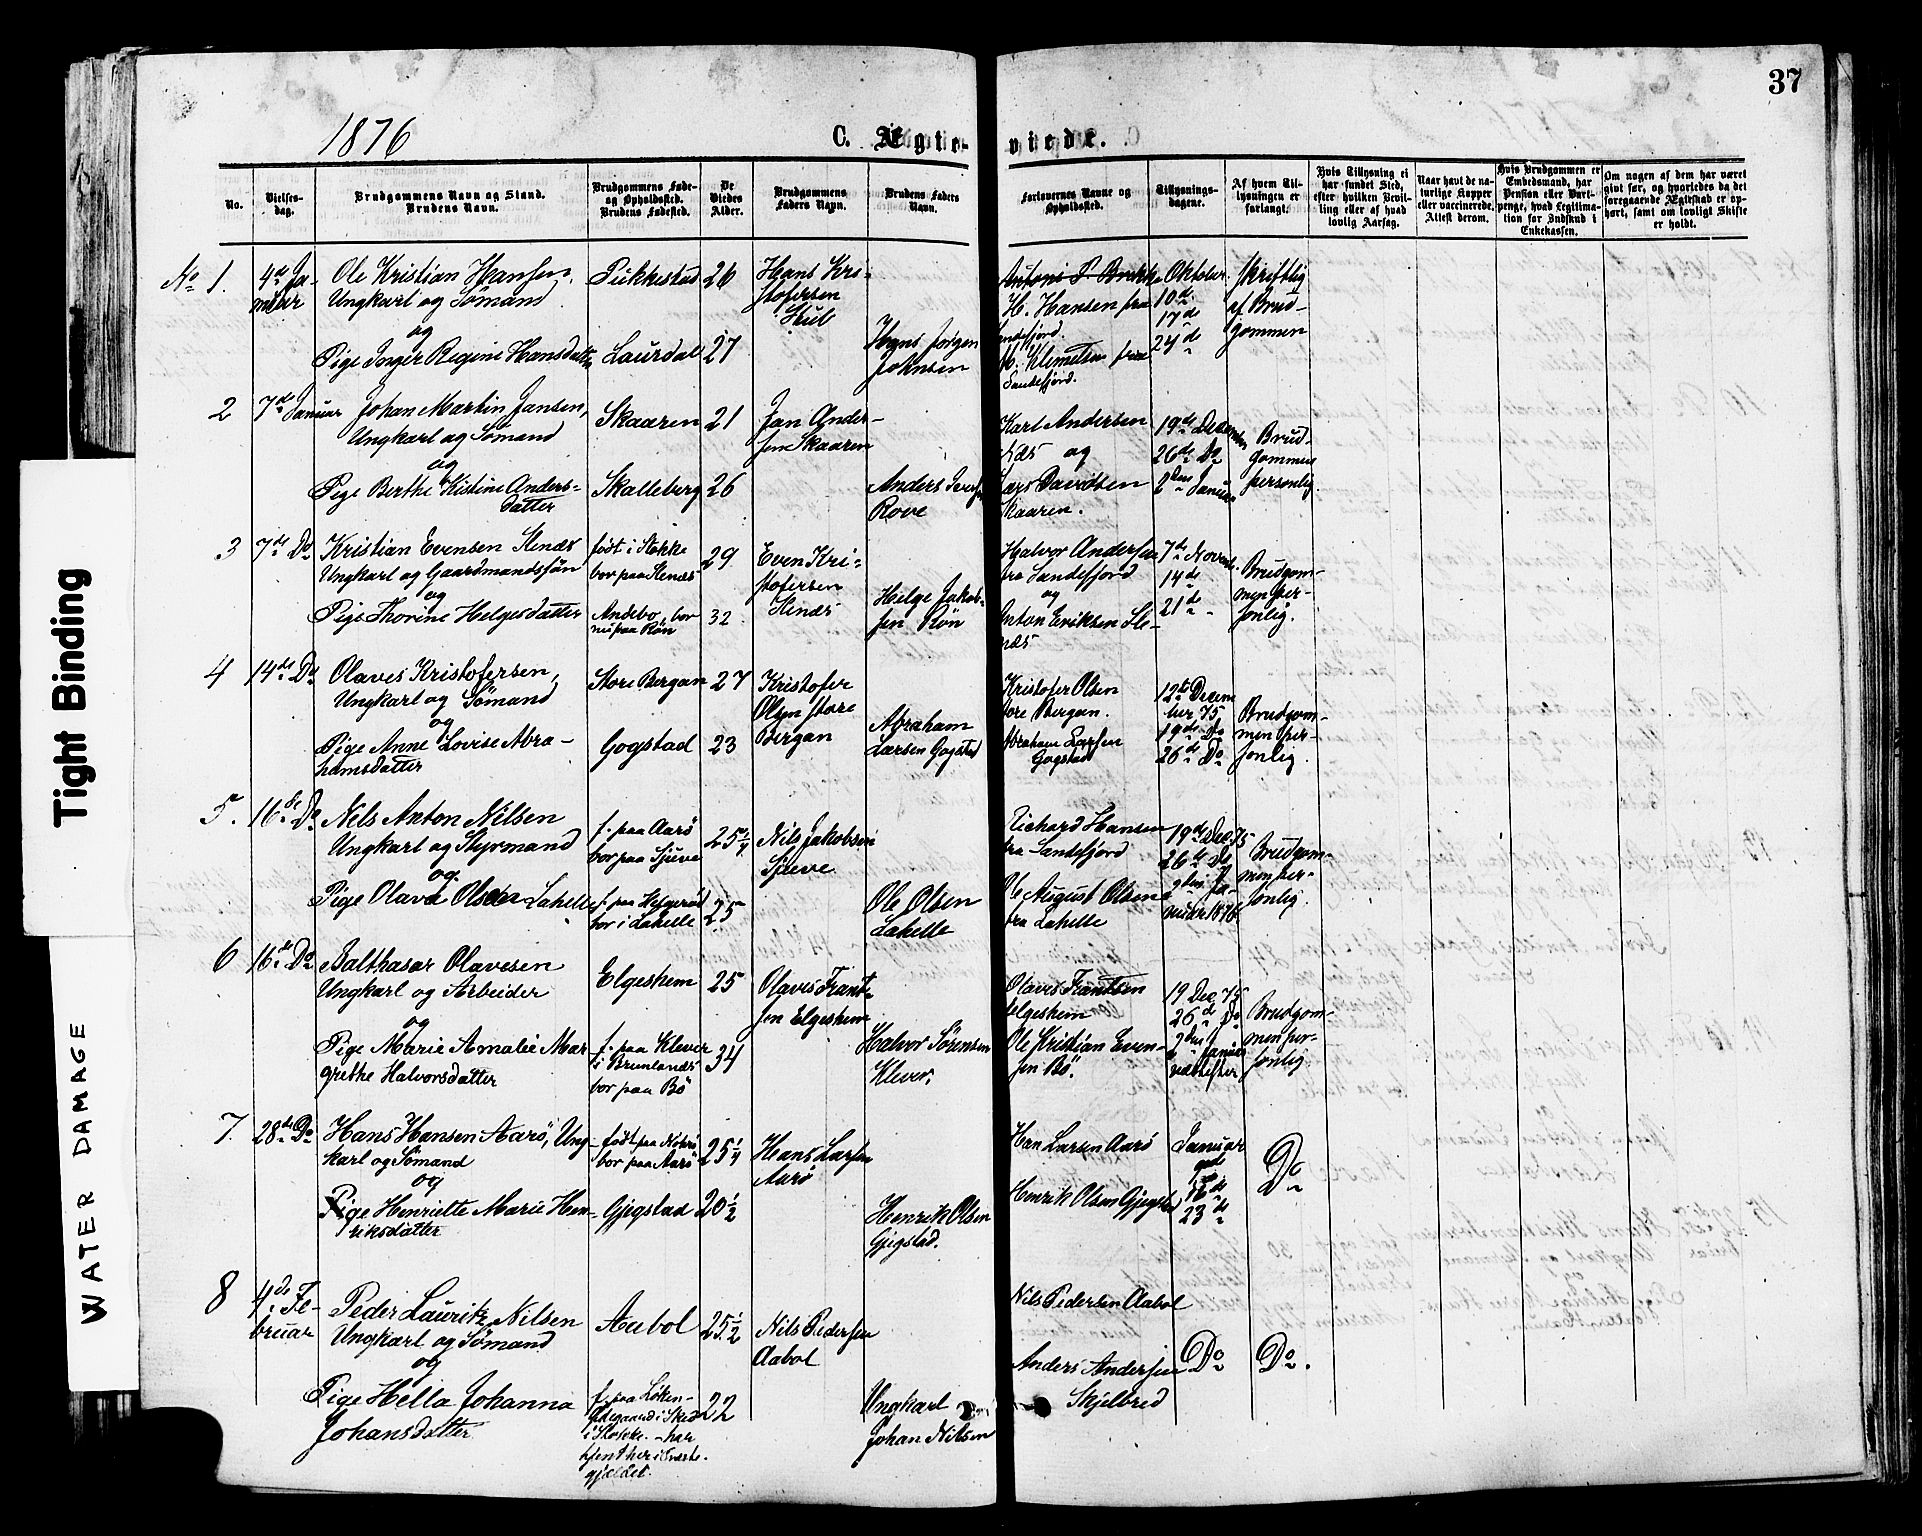 37
1876
C. Ægte-
viede.
No.
Vielses-
dag.
Brudgommens Navn og Stand.
Brudens Navn.
Brudgommens Føde-
og Opholdssted.
Brudens Fødested.
De
Viedes
Alder.
Brudgommens
Faders Navn.
Brudens Faders
Navn.
Forlovernes Navne og
Opholdssted.
Tillysnings-
dagene.
Af hvem Til-
lysningen er
forlangt.
Hvis Tillysning ei
har fundet Sted,
efter hvilken Bevil-
ling eller af hvad
lovlig Aarsag.
Naar havt de na-
turlige Kopper
eller vaccinerede,
Attest derom.
Hvis Brudgommen er
Embedsmand, har
Pension eller Vart-
penge, hvad Legitima-
tion for Indskud i
Enkekassen.
Om nogen af dem har været
givt før, og hvorledes da det
foregaaende Ægteskab er op-
hørt, samt om lovligt Skifte
er holdt.
No 1.
4de Ja-
nuar
Ole Kristian Hansen,
Ungkarl og Sømand
og
Pige Inger Regine Hansdatter
Pukkestad
Laurdal
26
27
Hans Kri-
stofersen
Hans Jørgen
Johnsen
H. Hansen fra
Sandefjord.
M. Klemetsen fra
Sandefjord.
Oktober
10de
17de
24de
skriftlig
af Brud-
gommen
2
7de Januar
Johan Martin Jansen,
Ungkarl og Sømand
og
Pige Berthe Kistine Anders-
datter
Skaaren
Skalleberg
21
26
Jan Ander-
sen Skaaren
Anders Iversen
Rove
Karl Andersen
og
Lars Davidsen
Skaaren.
19de December
26de Do
2den Januar
Brud-
gommen
personlig.
3
7de Do
Kristian Evensen Stenæs
Ungkarl og Gaardmandssøn
og
Pige Thorine Helgesdatter
født i Stokke
bor paa Stenæs
Andebo, bor
nu paa Røn
29
32
Even Kri-
stofersen
Stenæs
Helge Jakob-
sen Røn
Halvor Andersen
fra Sandefjord
og
Anton Eriksen Ste-
næs
7de Novem.
14de
21de
Brudgom-
men per-
sonlig.
4
14de Do
Olaves Kristofersen,
Ungkarl og Sømand
og
Pige Anne Lovise Abra-
hamsdatter
Store Bergan
Gogstad
27
23
Kristofer
Olsen store
Bergan
Abraham
Larsen Gogstad
Kristofer Olsen
store Bergan.
Abraham Larsen
Gogstad
12te Decem
ber 75
19de Do
26de Do
Brudgom-
men per-
sonlig.
5.
16de Do
Nils Anton Nilsen
Ungkarl og Styrmand
og.
Pige Olava Olsen Lahelle
f. paa Aarø
bor paa Sjuve
bor i Lahelle
25 1/4
25
Nils Jakobsen
Sjueve
Ole Olsen
Lahelle
Richard Hansen
fra Sandefjord
Ole August Olsen
fra Lahelle
19de Dec 75
26de Do
9den Ja-
nuar 1876.
Brudgom-
men per-
sonlig.
6
16de Do
Balthasar Olavesen
Ungkarl og Arbeider
og
Pige Marie Amalie Mar
grethe Halvorsdatter
Elgeshem
f. paa Klever
i Brunlanæs
bor paa Bø
25
34
Olaves Frant-
sen Elgeshem
Halvor Sørensen
Klever.
Olaves Frantsen
Elgeshem
Ole Kristian Even-
sen Bø.
19 Dec 75
26de Do
9den Januar
næstefter
Brudgom-
men per-
sonlig
7.
28de Do
Hans Hansen Aarø, Ung-
karl og Sømand
og
Pige Henriette Marie Hen-
riksdatter
bor paa Aarø
Gjegstad
25 1/4
20 1/2
Hans Larsen
Aarø
Henrik Olsen
Gjegstad.
Han Larsen Aarø
Henrik Olsen Gjegstad
Januar
9de
16de
23de
Do
8
4de Fe-
bruar
Peder Lauritz Nilsen
Ungkarl og Sømand
og
Pige Hella Johanna
Johansdatter
Aabol
f. paa Løken-
i Stokke. - har
tjent her i Præste-
gjældet.
25 1/2
22
Nils Pedersen
Aabol
Ungkarl
Johan Nilsen
Nils Pedersen Aabol
Anders Andersen
Skjelbred
Do
Do.
Tight Binding
WATER DAMAGE